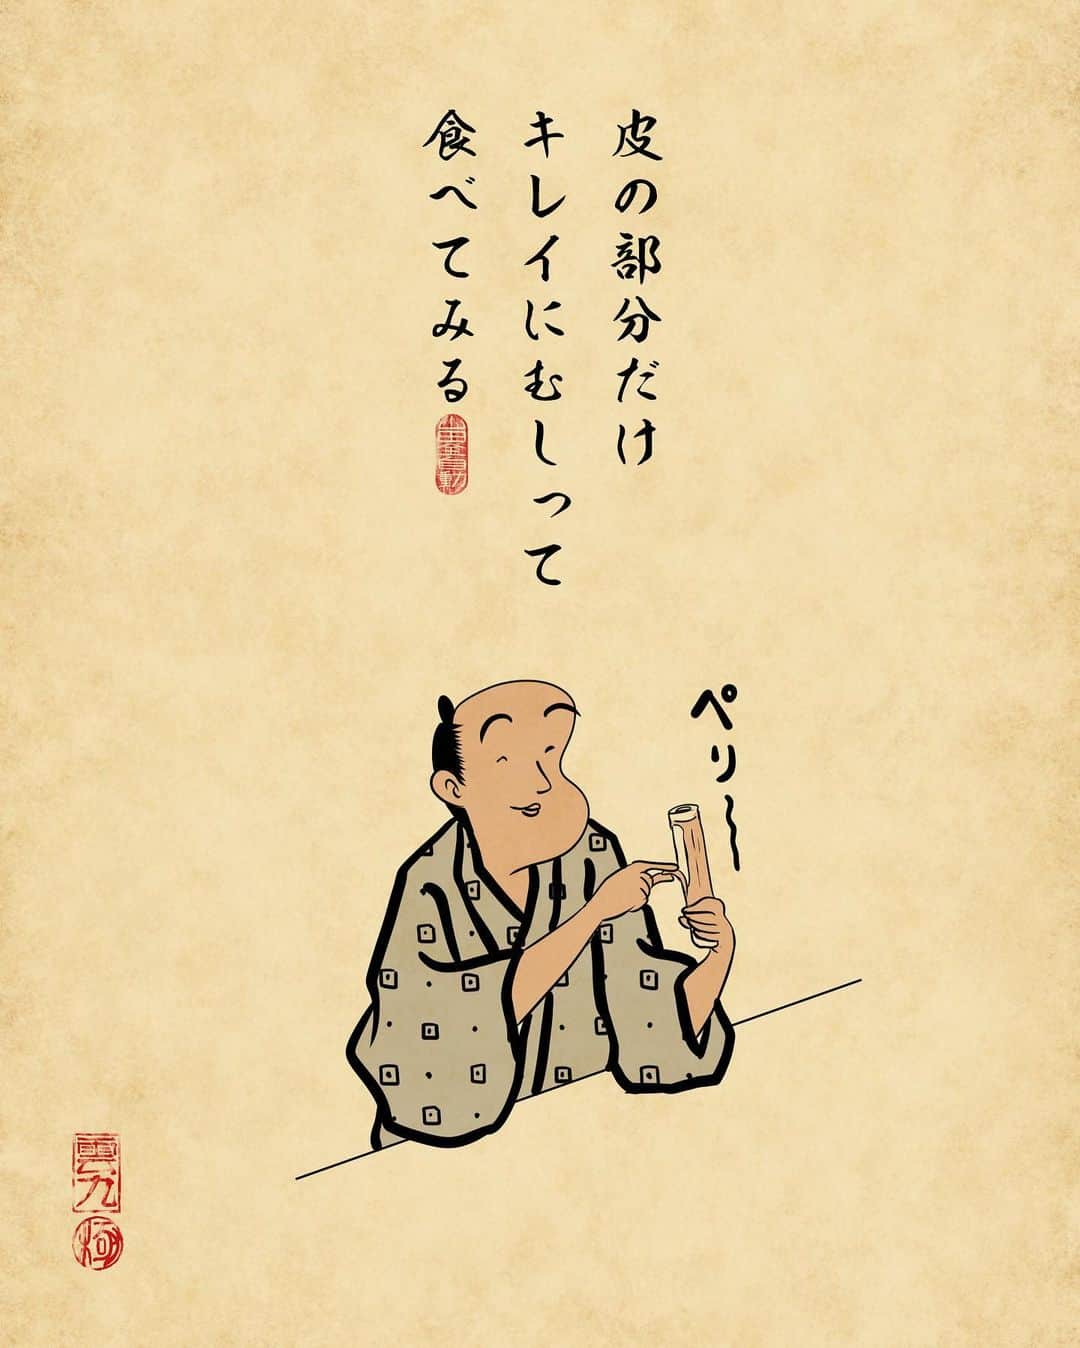 皮の部分だけ
キレイにむしって
食べてみる
ペリ〜